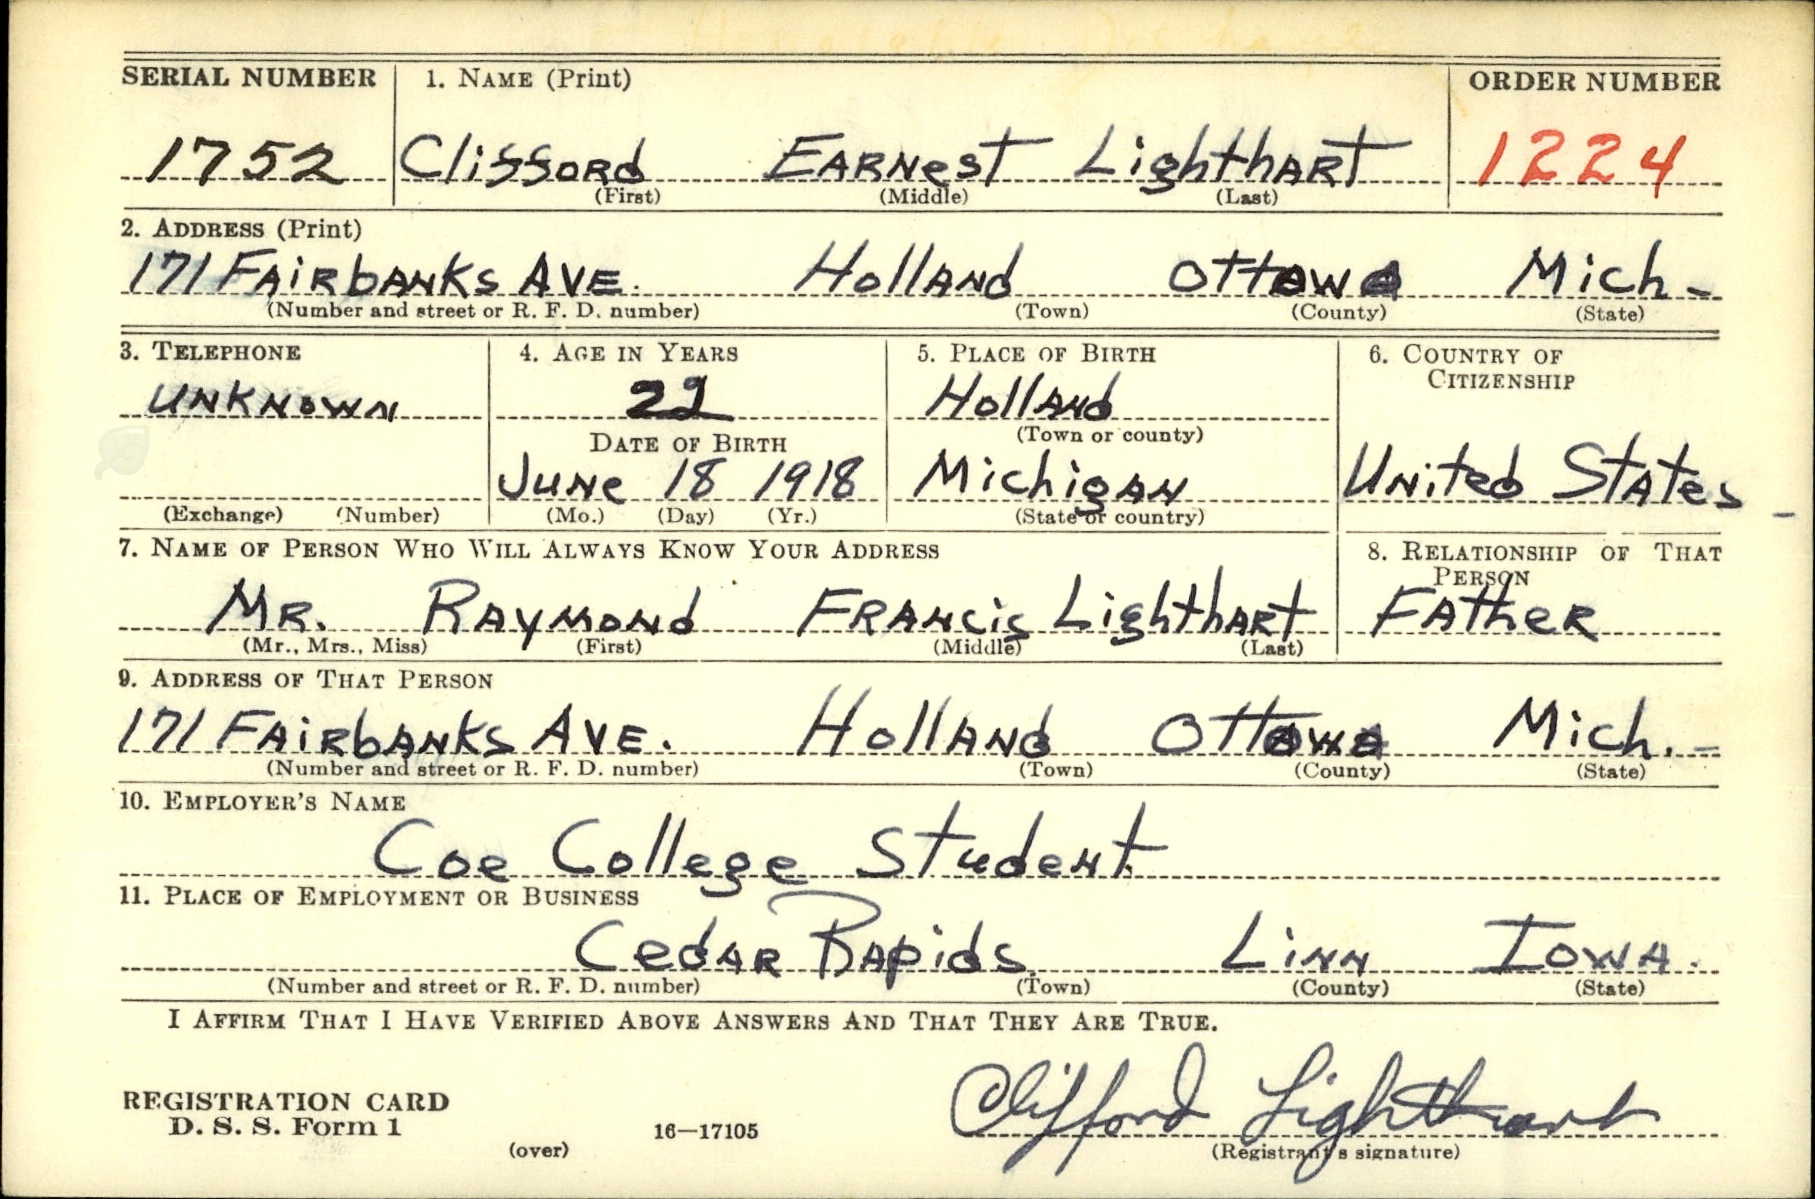 SERIAL NUMBER 1. NAME (Print) ORDER NUMBER
1752 Clifford EARNEST LighthART 1224
(First) (Middle) (Last)
2. ADDRESS (Print)
171 FAirbANKS AVE. HollANd OttAWA Mich.
(Number and street or R. F. D. number) (Town) (County) (State)
3. TELEPHONE 4. AGE IN YEARS 5. PLACE OF BIRTH 6. COUNTRY OF CITIZENSHIP
UNKNOWN 22 HollANd
DATE OF BIRTH (Town or county)
JUNe 18 1918 MichigAN UNited StAtes
(Exchange) (Number) (Mo.) (Day) (Yr.) (State or country)
7. NAME OF PERSON WHO WILL ALWAYS KNOW YOUR ADDRESS 8. RELATIONSHIP OF THAT PERSON
MR. RAYMONd FRANcis LighthARt FAtheR
(Mr., Mrs., Miss) (First) (Middle) (Last)
9. ADDRESS OF THAT PERSON
171 FAirbANKS AVE. HollANd OttAWA Mich.
(Number and street or R. F. D. number) (Town) (County) (State)
10. EMPLOYER'S NAME
Coe College Student
11. PLACE OF EMPLOYMENT OR BUSINESS
CedAR RApids LiNN IOWA.
(Number and street or R. F. D. number) (Town) (County) (State)
I AFFIRM THAT I HAVE VERIFIED ABOVE ANSWERS AND THAT THEY ARE TRUE.
Clifford Lighthart
REGISTRATION CARD
D. S. S. Form 1
(over) 16—17105 (Registrant's signature)